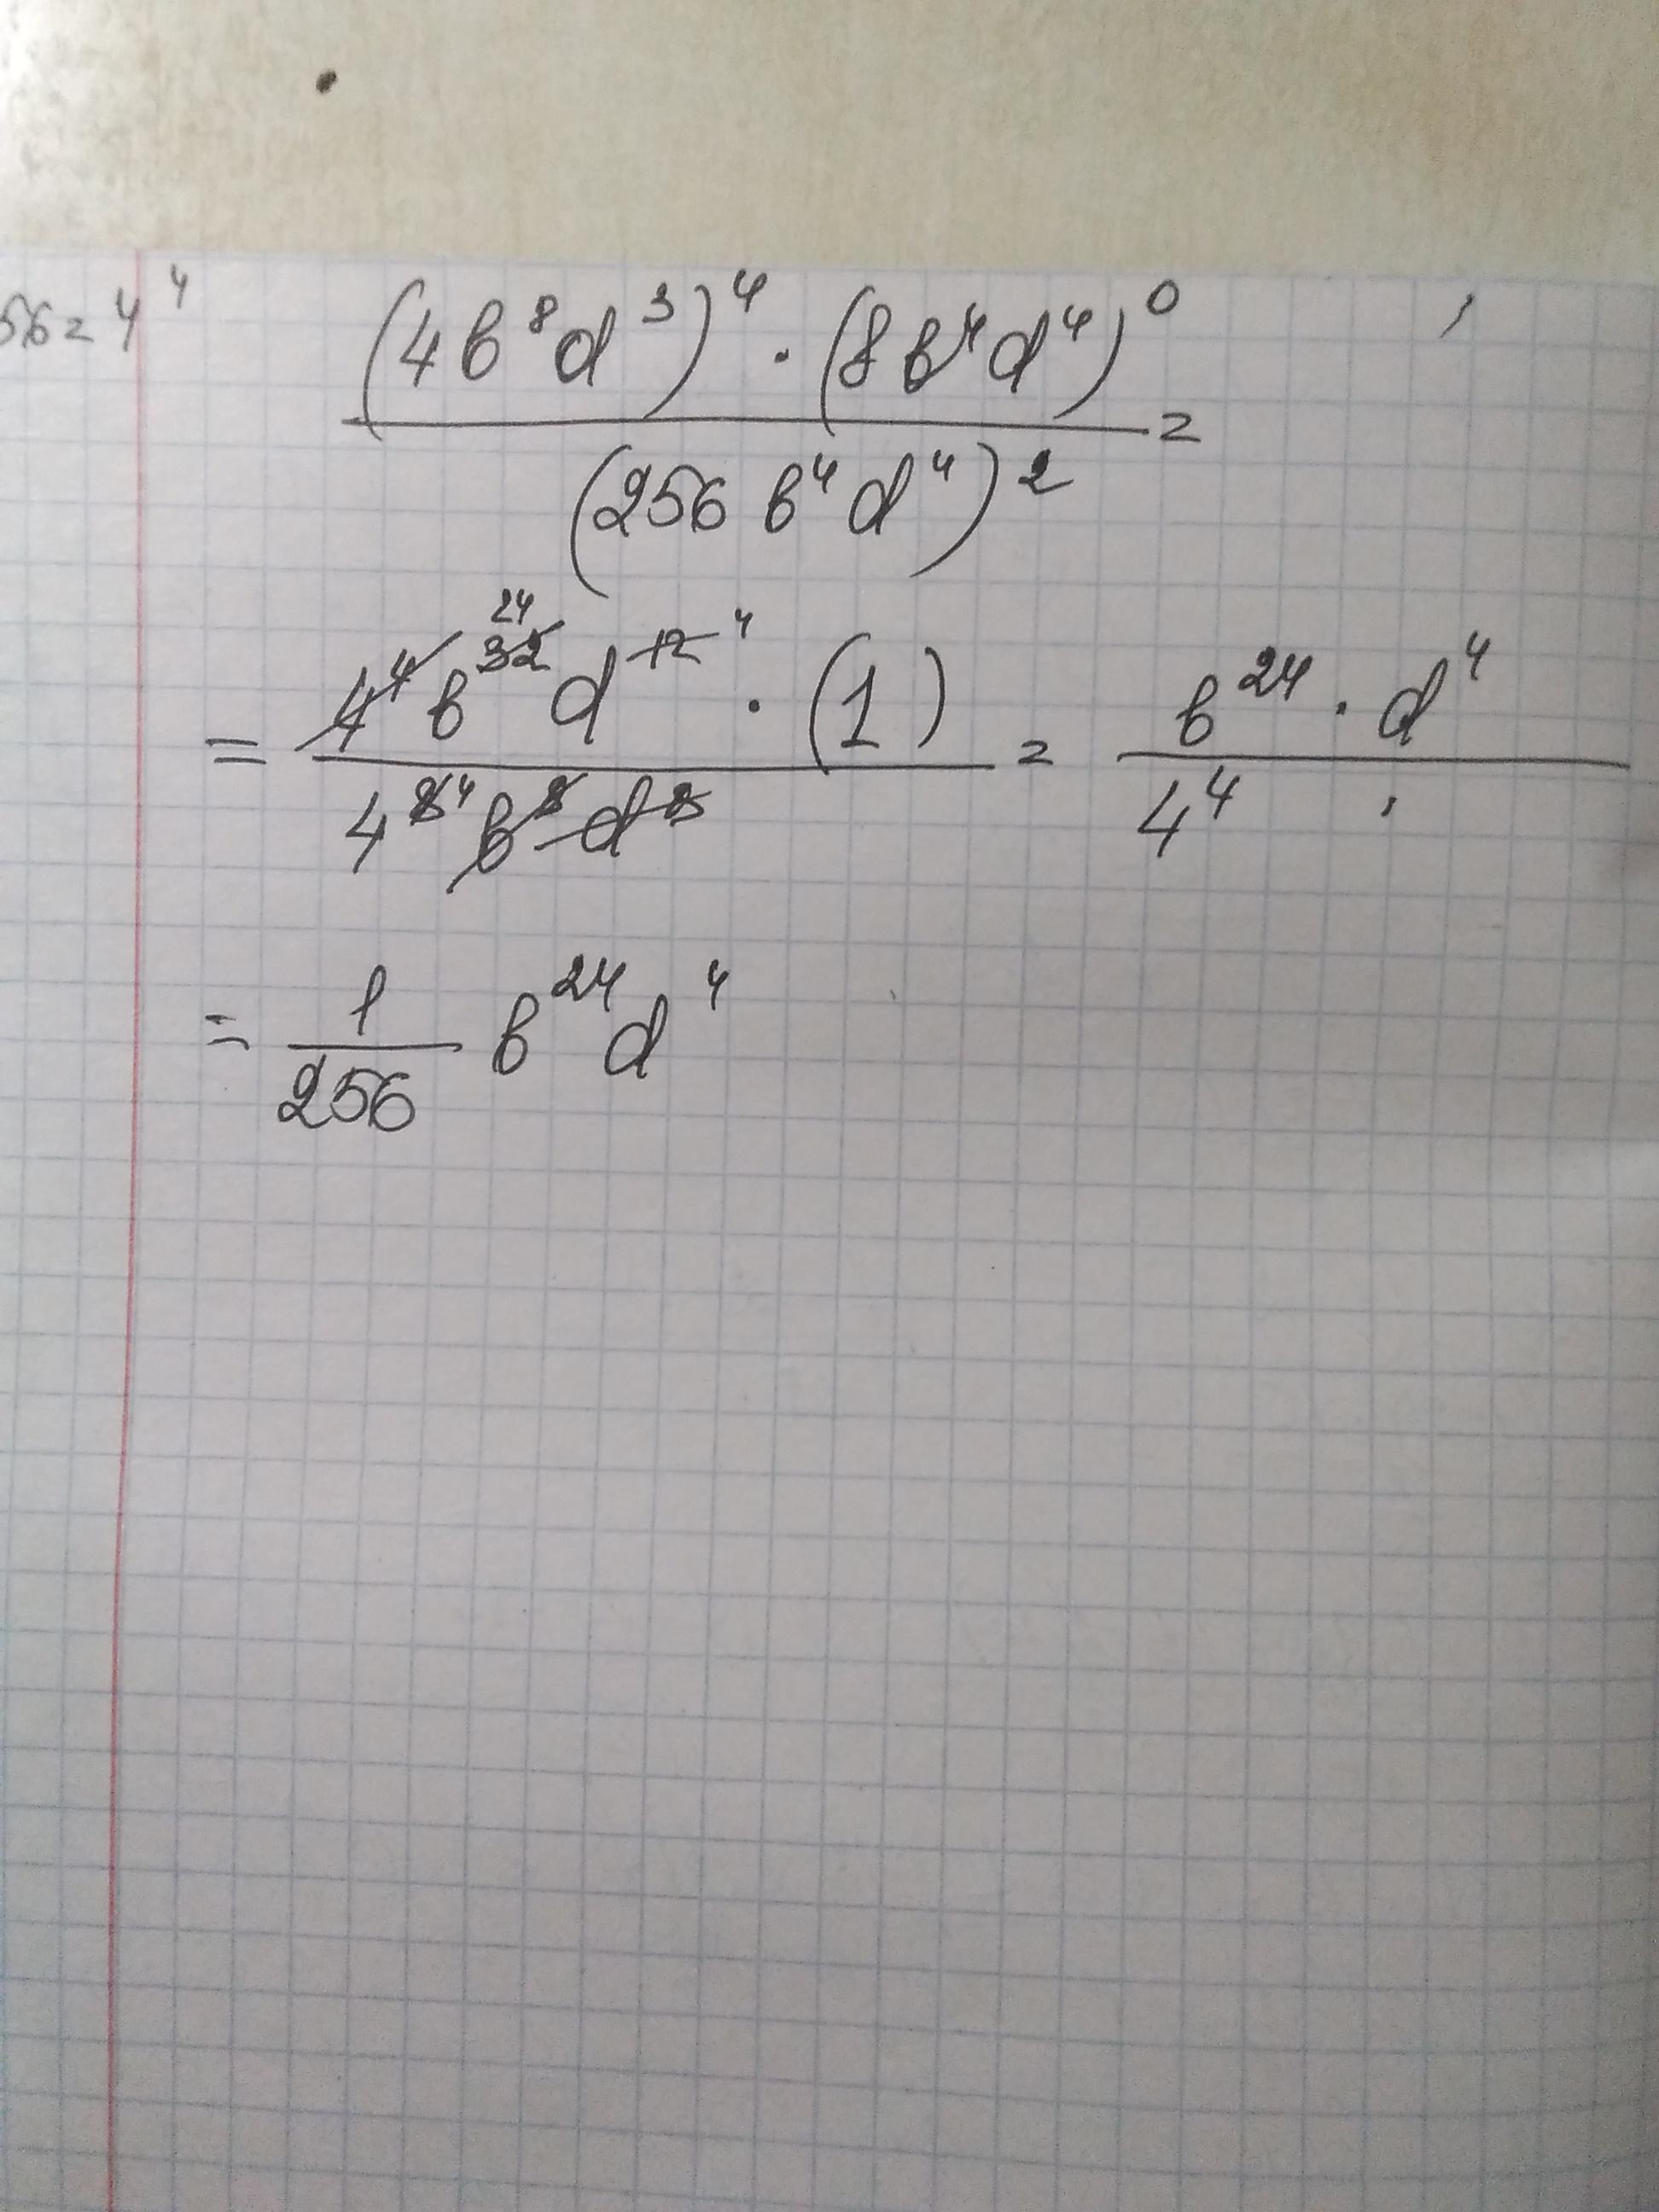 56 = 4⁴
(4b⁸d³)⁴ · (8b⁴d⁴)⁰
(256 b⁴d⁴)² =
= 4⁴ b³² ²⁴ d¹² ⁴ · (1) / 4⁸ ⁴ b⁸ d⁸ = b²⁴ · d⁴ / 4⁴
= 1/256 b²⁴d⁴